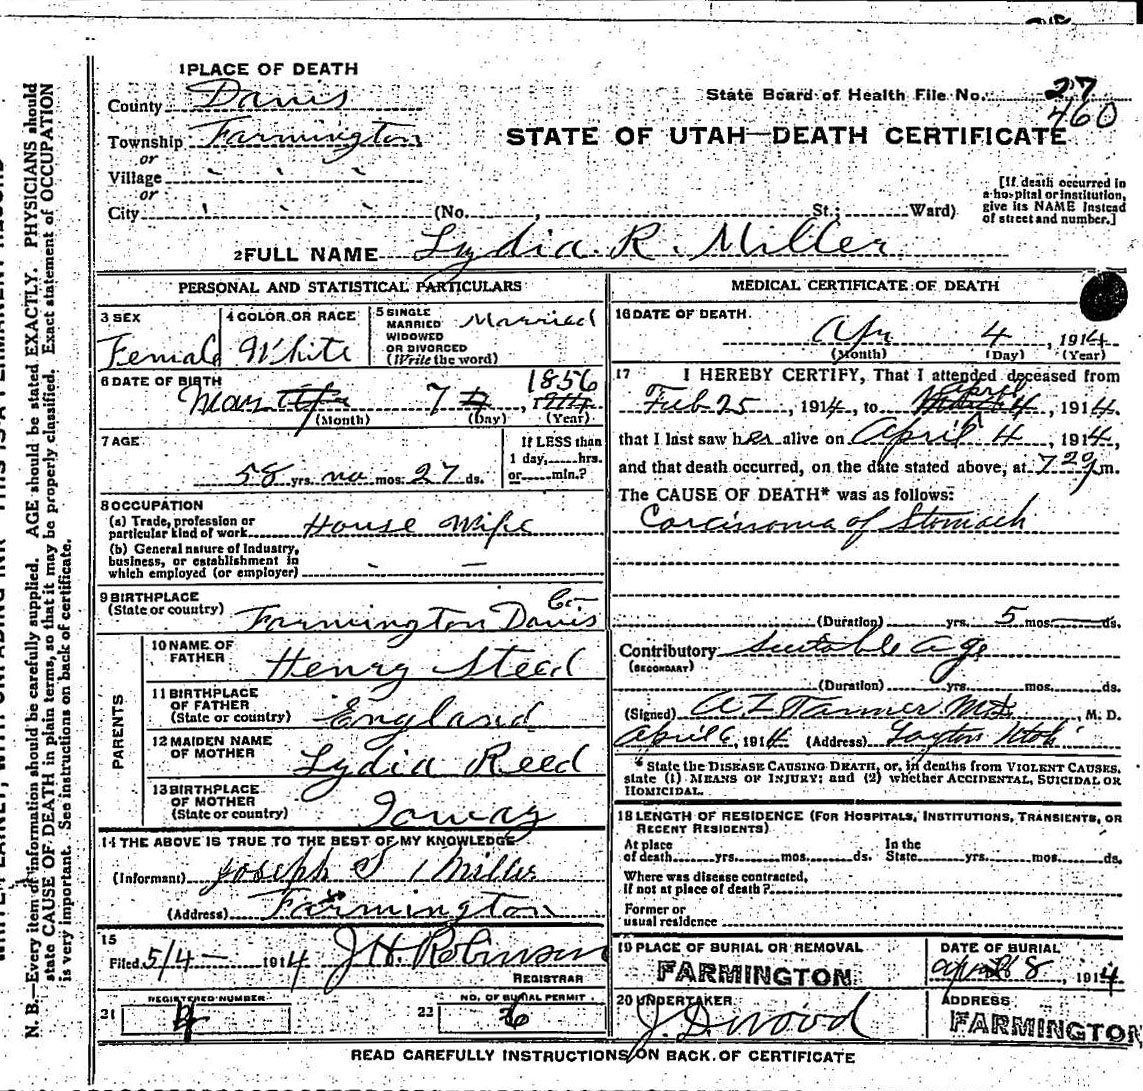 1 PLACE OF DEATH
County Davis
Township Farmington
or
Village
or
City (No. , St.; Ward)
State Board of Health File No. 27
760
STATE OF UTAH—DEATH CERTIFICATE
[If death occurred in
a hospital or institution,
give its NAME instead
of street and number.]
2 FULL NAME Lydia R. Miller
PERSONAL AND STATISTICAL PARTICULARS
3 SEX
Female
4 COLOR OR RACE
White
5 SINGLE
MARRIED
WIDOWED
OR DIVORCED
(Write the word)
Married
6 DATE OF BIRTH
7, 1856
(Month) (Day) (Year)
7 AGE
58 yrs. no mos. 27 ds.
If LESS than
1 day,......hrs.
or......min.?
8 OCCUPATION
(a) Trade, profession or
particular kind of work House Wife
(b) General nature of Industry,
business, or establishment in
which employed (or employer)
9 BIRTHPLACE
(State or country) Farmington Davis Co—
PARENTS
10 NAME OF
FATHER Henry Steed
11 BIRTHPLACE
OF FATHER
(State or country) England
12 MAIDEN NAME
OF MOTHER Lydia Reed
13 BIRTHPLACE
OF MOTHER
(State or country) Ioway
14 THE ABOVE IS TRUE TO THE BEST OF MY KNOWLEDGE
(Informant) Joseph S Miller
(Address) Farmington
15
Filed 5/4— 1914 J H. Robinson
REGISTRAR
REGISTERED NUMBER
21
NO. OF BURIAL PERMIT
22 6
MEDICAL CERTIFICATE OF DEATH
16 DATE OF DEATH.
Apr 4, 1914
(Month) (Day) (Year)
17 I HEREBY CERTIFY, That I attended deceased from
Feb 25, 1914, to April 4, 1914.
that I last saw her alive on April 4, 1914,
and that death occurred, on the date stated above, at 7 20 p m.
The CAUSE OF DEATH* was as follows:
Carcinoma of Stomach
(Duration) yrs. 5 mos. ds.
Contributory age
(SECONDARY)
(Duration) yrs. mos. ds.
(Signed) A Z Tanner M.D., M. D.
April 6, 1914 (Address) Layton Utah
* State the DISEASE CAUSING DEATH, or, in deaths from VIOLENT CAUSES,
state (1) MEANS OF INJURY; and (2) whether ACCIDENTAL, SUICIDAL OR
HOMICIDAL.
18 LENGTH OF RESIDENCE (FOR HOSPITALS, INSTITUTIONS, TRANSIENTS, OR
RECENT RESIDENTS)
At place
of death......yrs.......mos.......ds.
In the
State......yrs.......mos.......ds.
Where was disease contracted,
if not at place of death?
Former or
usual residence
19 PLACE OF BURIAL OR REMOVAL
FARMINGTON
DATE OF BURIAL
April 8, 1914
20 UNDERTAKER
J. D. Wood
ADDRESS
FARMINGTON
READ CAREFULLY INSTRUCTIONS ON BACK OF CERTIFICATE
N. B.—Every item of information should be carefully supplied. AGE should be stated EXACTLY. PHYSICIANS should
state CAUSE OF DEATH in plain terms, so that it may be properly classified. Exact statement of OCCUPATION
is very important. See instructions on back of certificate.